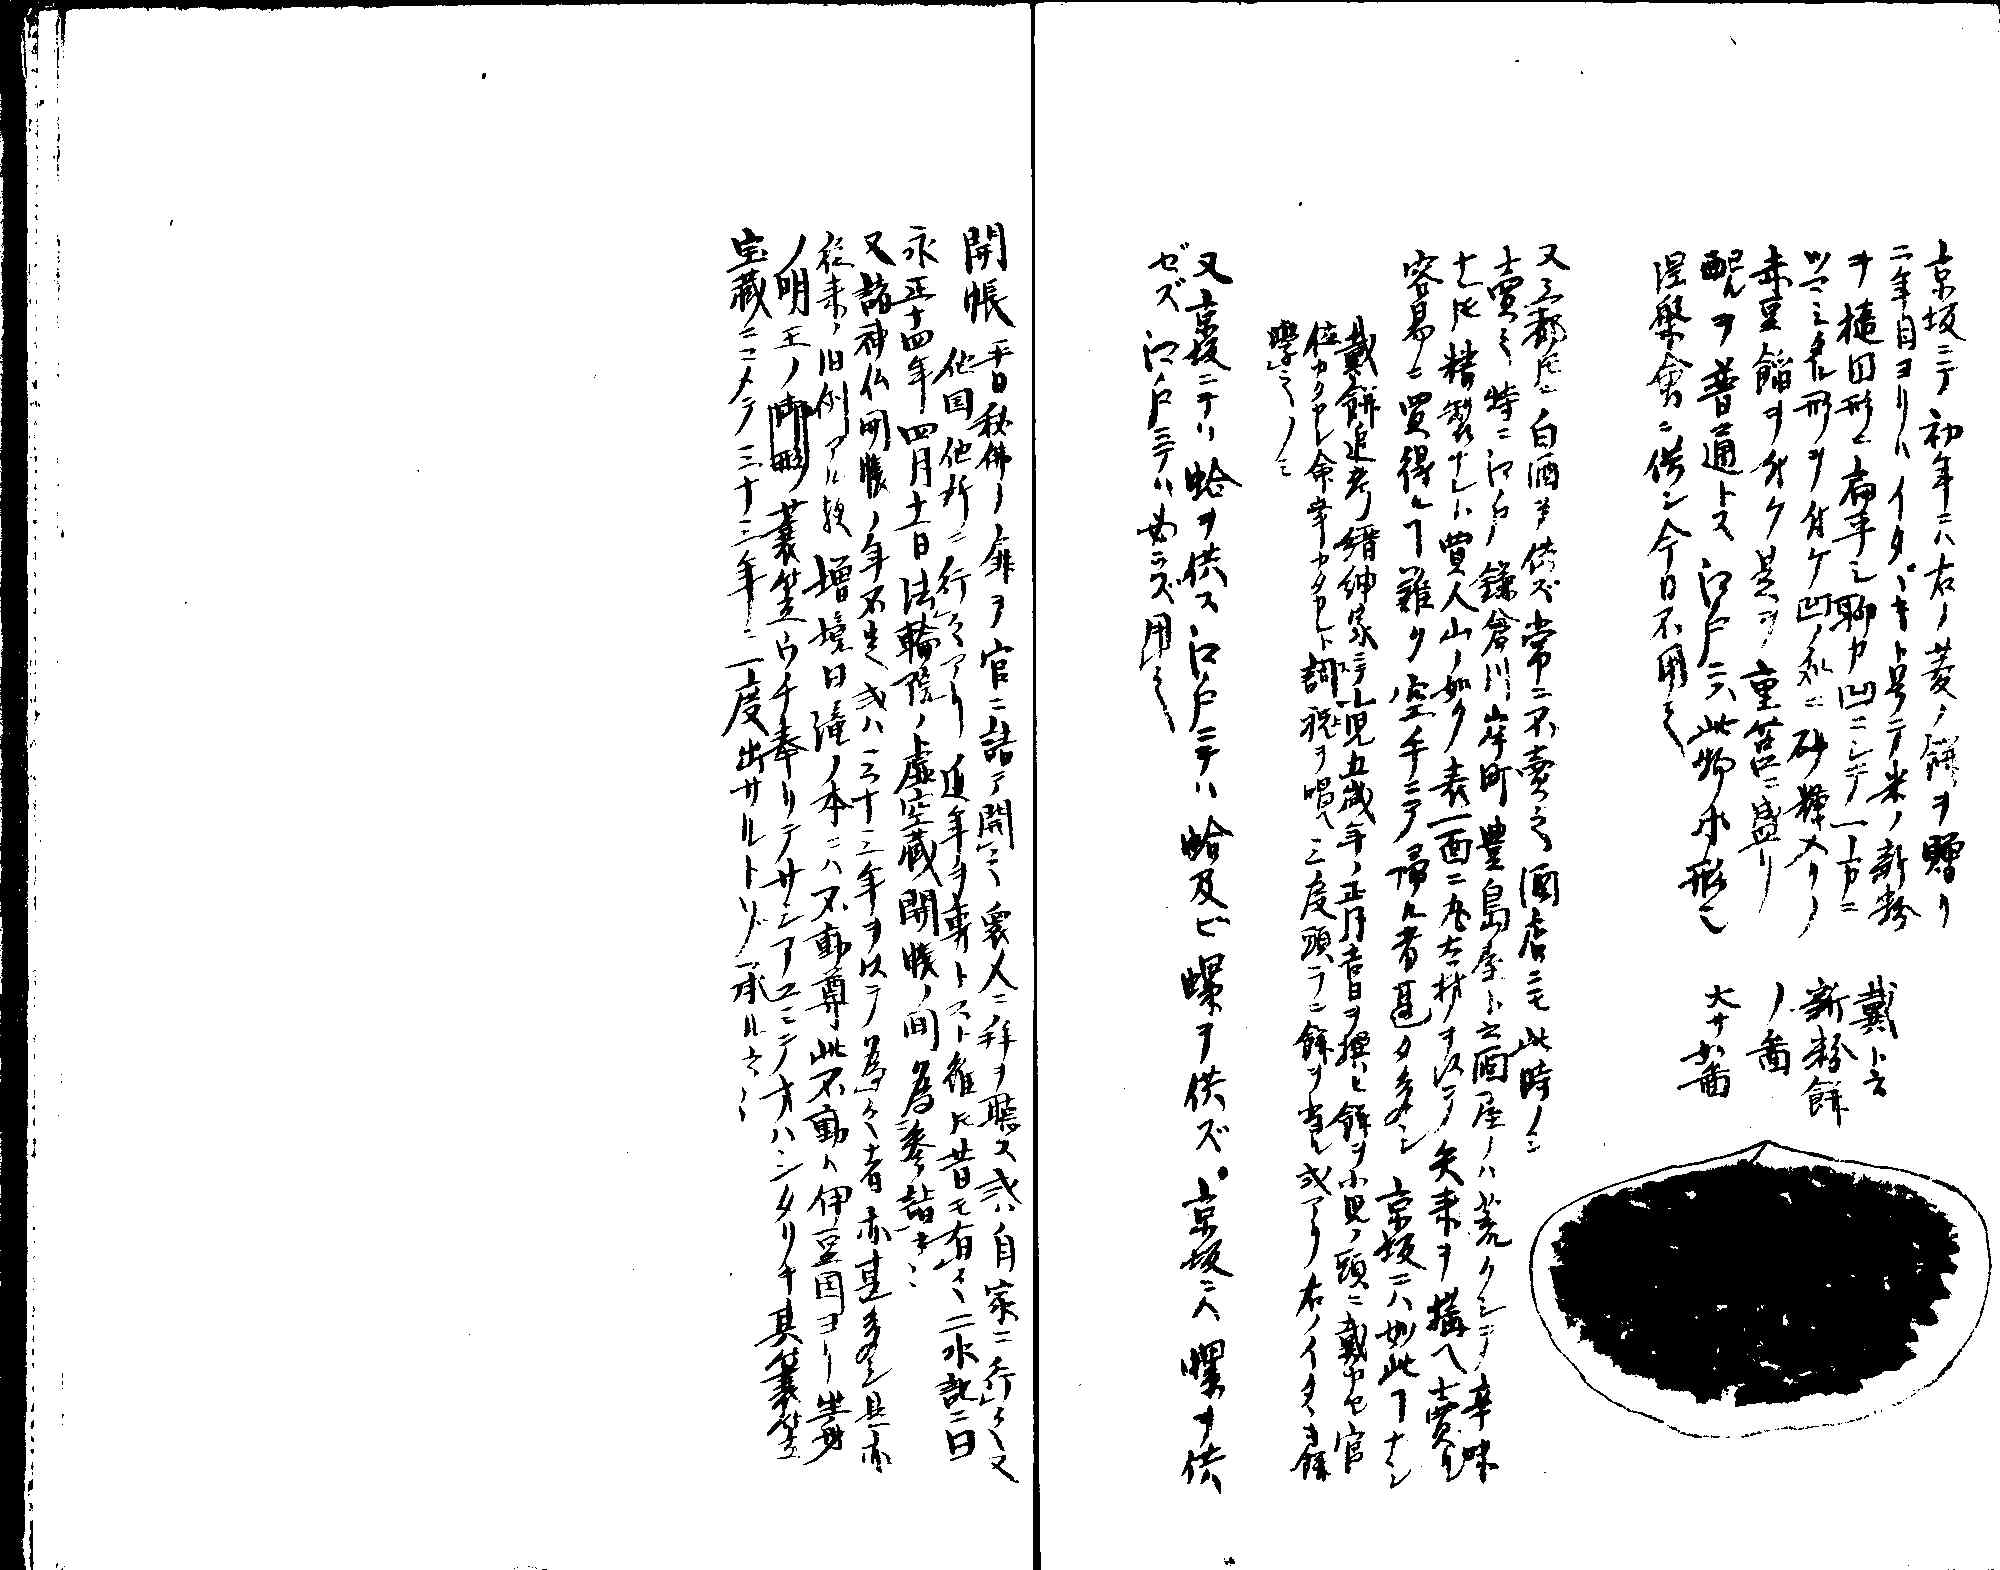 京坂ニテ初年ニハ右ノ菱ノ餅ヲ贈リ
二年目ヨリハイタヾキト号テ米ノ新粉
ヲ楕円形ニ扁平シ聊カ凹ニシテ一方ニ
ツマミタル形ヲ付ケ凹ノ処ニ砂糖入リノ
赤豆餡ヲ付ケ是ヲ重筥ニ盛リ
配ルヲ普通トス江戸ニハ此物亦無之
涅槃会ニ供シ今日不用之
戴ト云
新粉餅
ノ畵
大サ如畵
又三都トモニ白酒ヲ供ズ常ニ不売之酒店ニモ此時ノミ
売之特ニ江戸鎌倉川岸町豊島屋ト云酒屋ノハ荒クシテ辛味
ナレトモ精製ナレハ買人山ノ如ク表一面ニ丸太材ヲ以テ矢来ヲ構ヘ売レトモ
容易ニ買得ルコト難ク空手ニテ帰ル者甚タ多シ京坂ニハ如此コトナシ
戴餅追考縉紳家ニテ小児五歳年ノ正月吉日ヲ撰ヒ餅ヲ小児ノ頭ニ戴カセ官
位カクヤレ命幸カクヤレト詞祝ヲ唱ヘ三度頭ラニ餅ヲ当ル式アリ右ノイタヽキ餅
学之ノミ
又京坂ニテハ蛤ヲ供ス江戸ニテハ蛤及ビ螺ヲ供ズ京坂ニハ螺ヲ供
ゼズ江戸ニテハ必ラズ用之
開帳 平日秘佛ノ扉ヲ官ニ請テ開之衆人ニ拝ヲ聴ス或ハ自家ニ行之又
他国他所ニ行之アリ近年ヲ専トスト雖トモ昔モ有之二水記ニ曰
永正十四年四月十一日法輪院ノ虚空蔵開帳ノ間為参詣云々
又諸神仏開帳ノ年不定或ハ三十三年ヲ以テ為之者亦甚多シ是亦
従来ノ旧例アル歟増鏡曰滝ノ本ニハ不動尊此不動ハ伊豆国ヨリ生身
ノ明王ノ御形蓑笠ウチ奉リテサシアユミテオハシタリキ其蓑笠
宝蔵ニコメテ三十三年ニ一度出サルトソ承ル云々